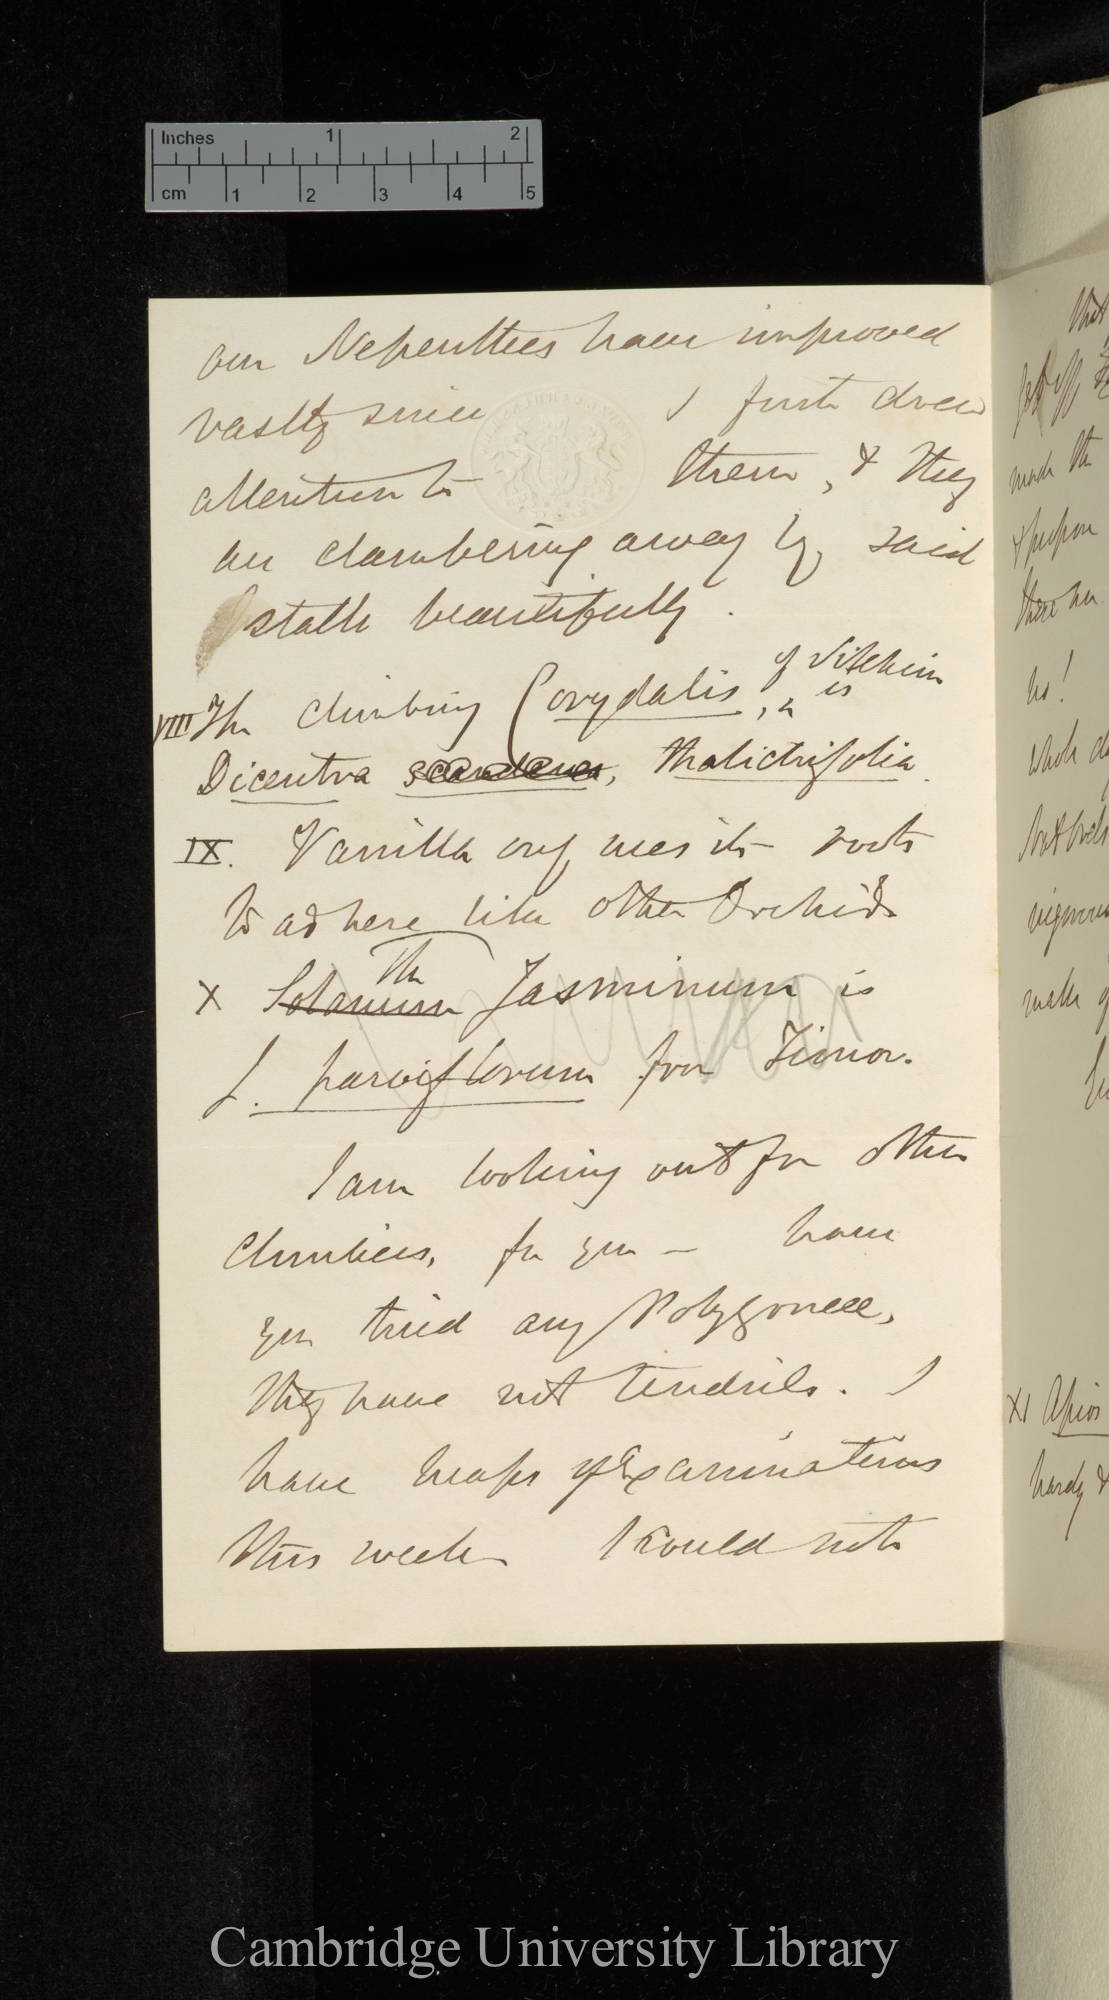 Inches 1 2
cm 1 2 3 4 5
our Nepenthes have improved
vastly since I first drew
attention to them, & they
are clambering away by said
stalk beautifully.
VIII The climbing Corydalis, of Veitch's is
Dicentra thalictrifolia.
IX. Vanilla only uses its roots
to adhere like other Orchids
X Solanum The Jasminum is
J. parviflorum from Timor.
I am looking out for other
climbers, for you — have
you tried any Polygoneæ,
they have not tendrils. I
have heaps of Examinations
this week I could not
that
made the
& prepon
there are
no!
whole
vigorous
make
XI Apios
hardy &
Cambridge University Library